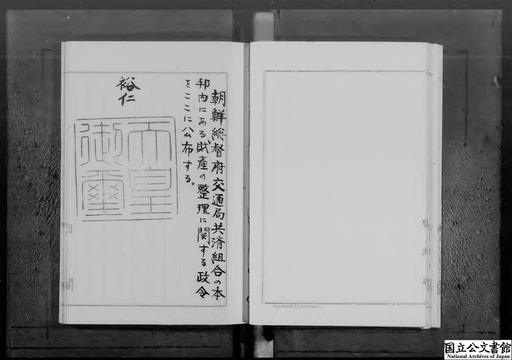 朝鮮総督府交通局共済組合の本
邦内にある財産の整理に関する政令
をここに公布する。
裕仁
天皇
御璽
国立公文書館
National Archives of Japan